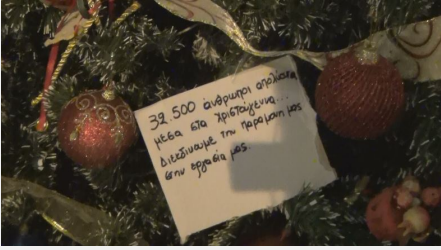 32.500 άνθρωποι απόλυση
μέσα στα Χριστούγεννα...
Διεκδικούμε την παραμονή μας
στην εργασία μας.